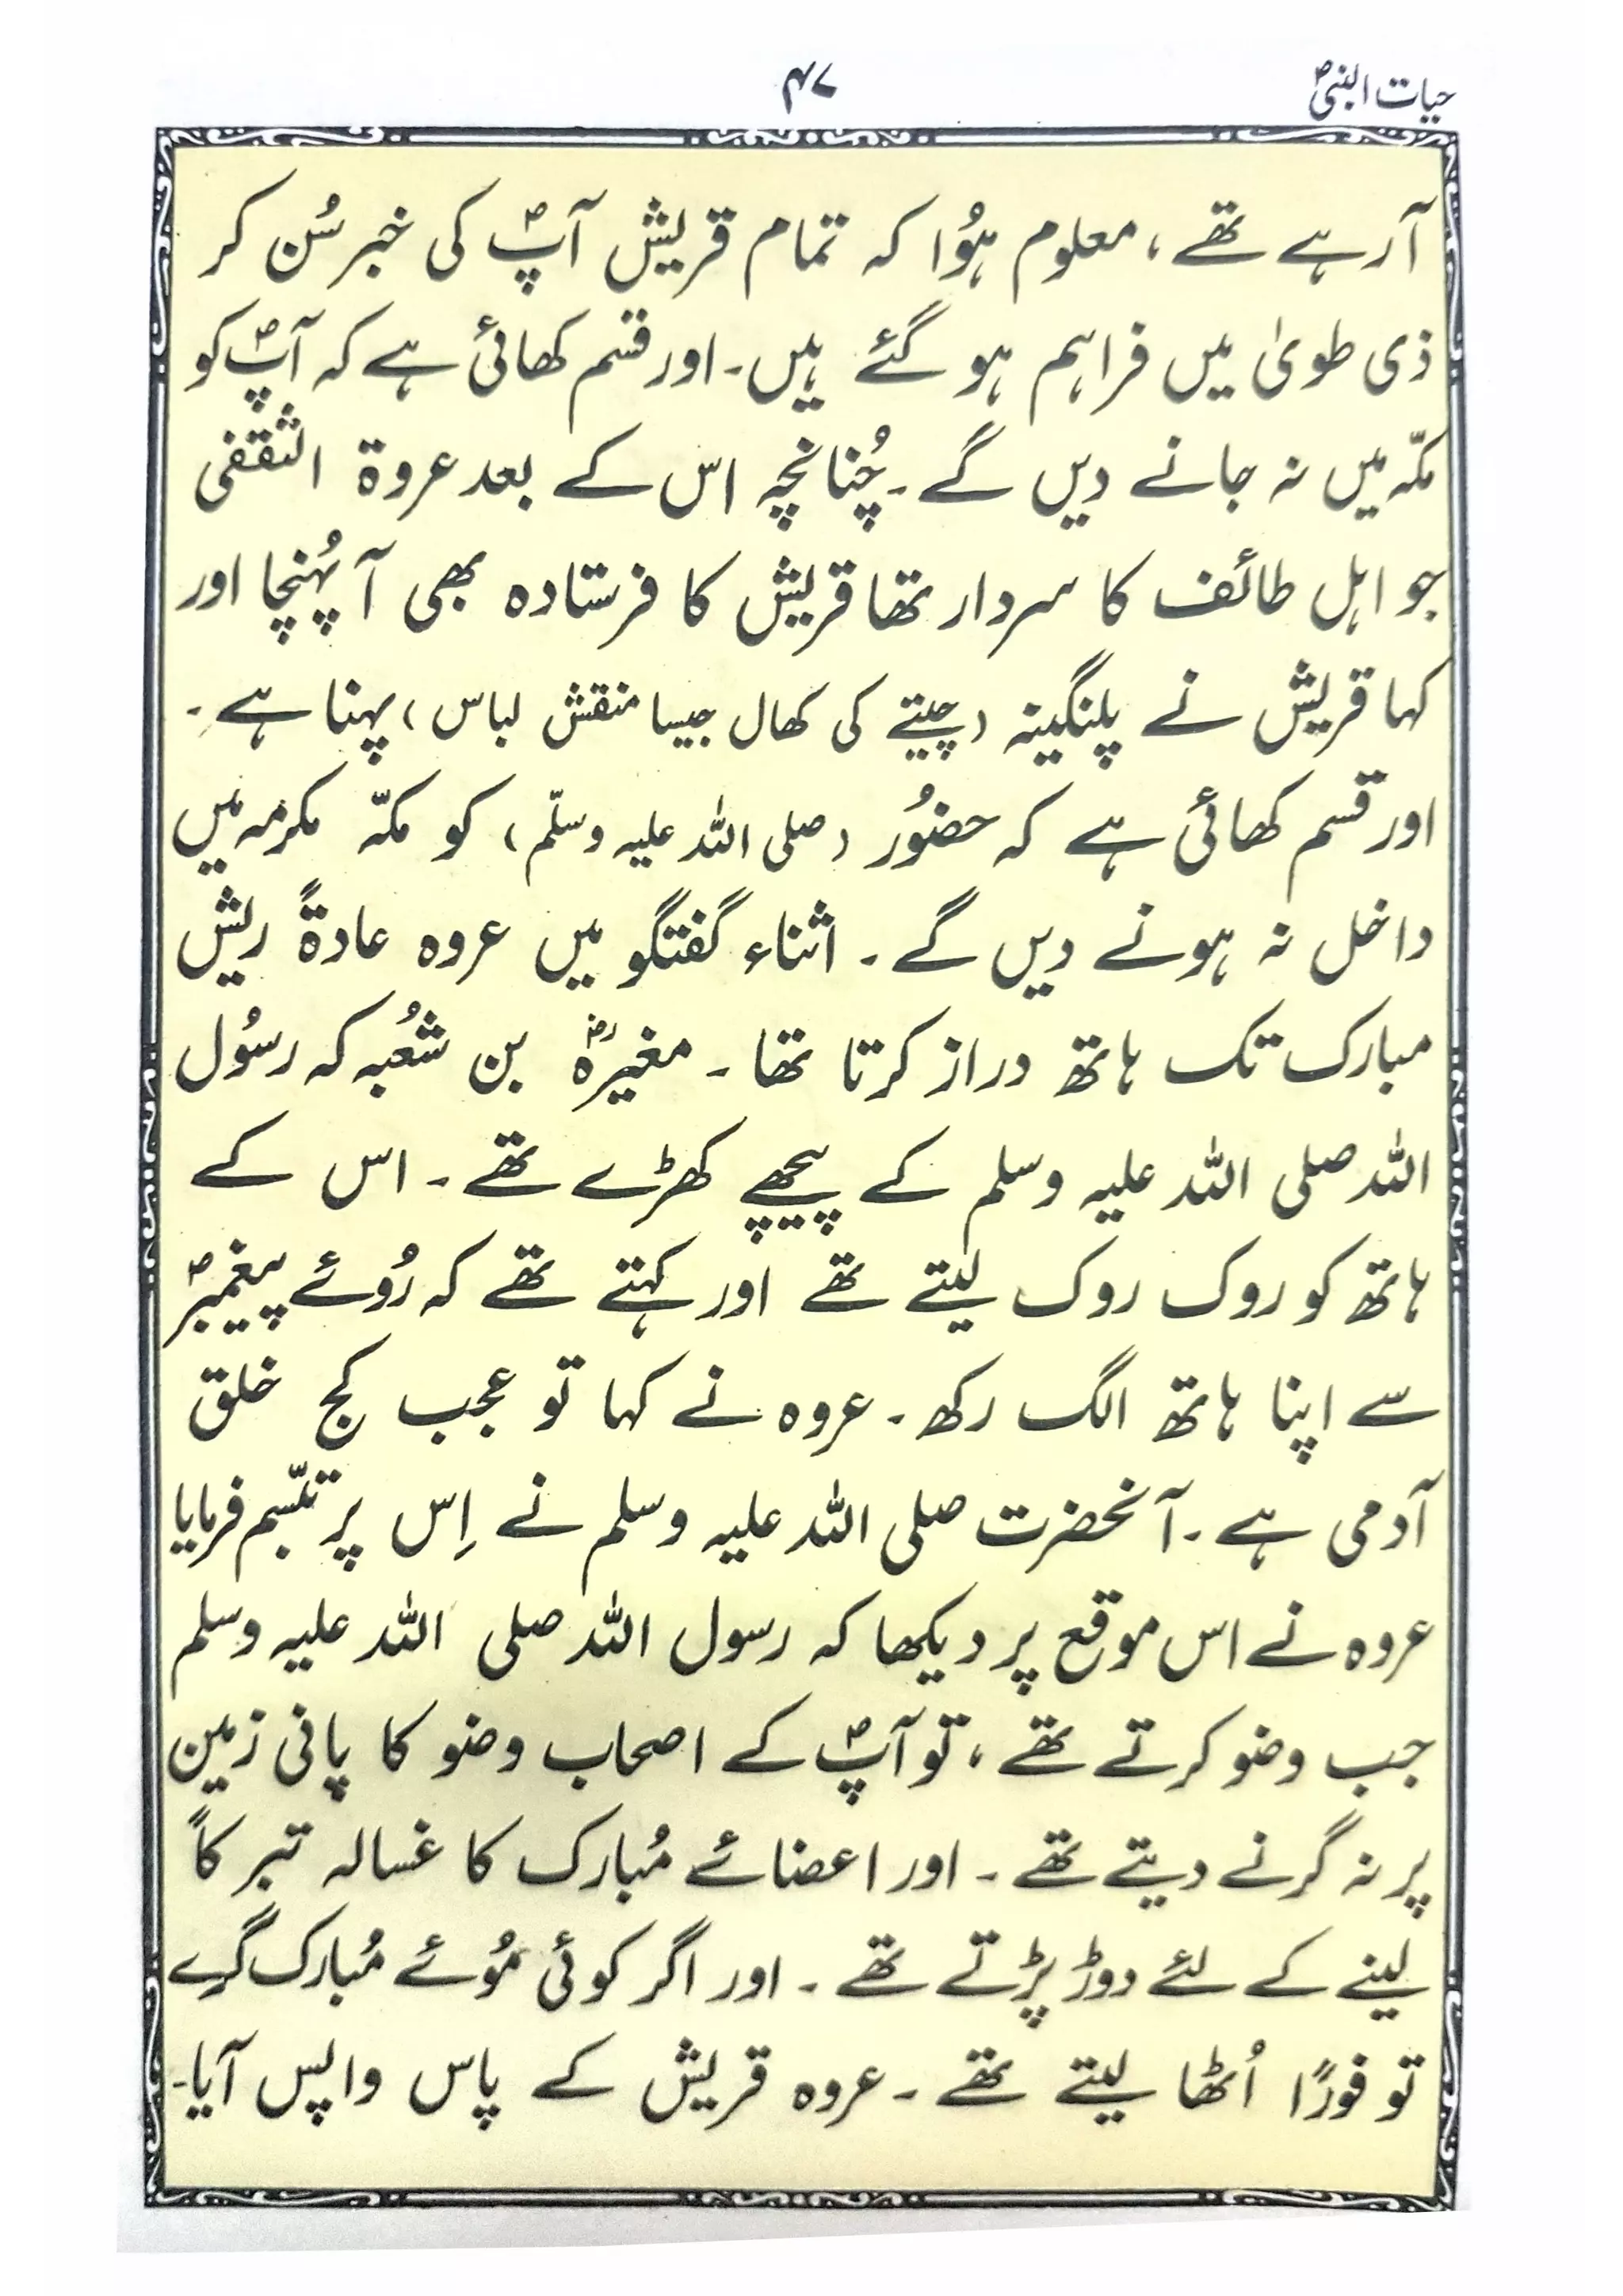 حیات النبیؐ
۴۷
آرہے تھے، معلوم ہُوا کہ تمام قریش آپؐ کی خبر سُن کر
ذی طویٰ میں فراہم ہو گئے ہیں۔ اور قسم کھائی ہے کہ آپؐ کو
مکّہ میں نہ جانے دیں گے۔ چُنانچہ اس کے بعد عروة الثقفی
جو اہل طائف کا سردار تھا قریش کا فرستادہ بھی آ پہُنچا اور
کہا قریش نے پلنگینہ (چیتے کی کھال جیسا منقش لباس) پہنا ہے۔
اور قسم کھائی ہے کہ حضوُر (صلی اللہ علیہ وسلّم) کو مکہّ مکرمہ میں
داخل نہ ہونے دیں گے۔ اثناء گفتگو میں عروہ عادةً ریش
مبارک تک ہاتھ دراز کرتا تھا۔ مغیرہؓ بن شُعبہ کہ رسوُل
اللہ صلی اللہ علیہ وسلم کے پیچھے کھڑے تھے۔ اس کے
ہاتھ کو روک روک لیتے تھے اور کہتے تھے کہ رُوئے پیغمبرؐ
سے اپنا ہاتھ الگ رکھ۔ عروہ نے کہا تو عجب کج خلق
آدمی ہے۔ آنحضرت صلی اللہ علیہ وسلم نے اِس پر تبسّم فرمایا
عروہ نے اس موقع پر دیکھا کہ رسول اللہ صلی اللہ علیہ وسلم
جب وضو کرتے تھے، تو آپؐ کے اصحاب وضو کا پانی زمین
پر نہ گرنے دیتے تھے۔ اور اعضائے مُبارک کا غسالہ تبرکاً
لینے کے لئے دوڑ پڑتے تھے۔ اور اگر کوئی مُوئے مُبارک گرے
تو فورًا اُٹھا لیتے تھے۔ عروہ قریش کے پاس واپس آیا۔